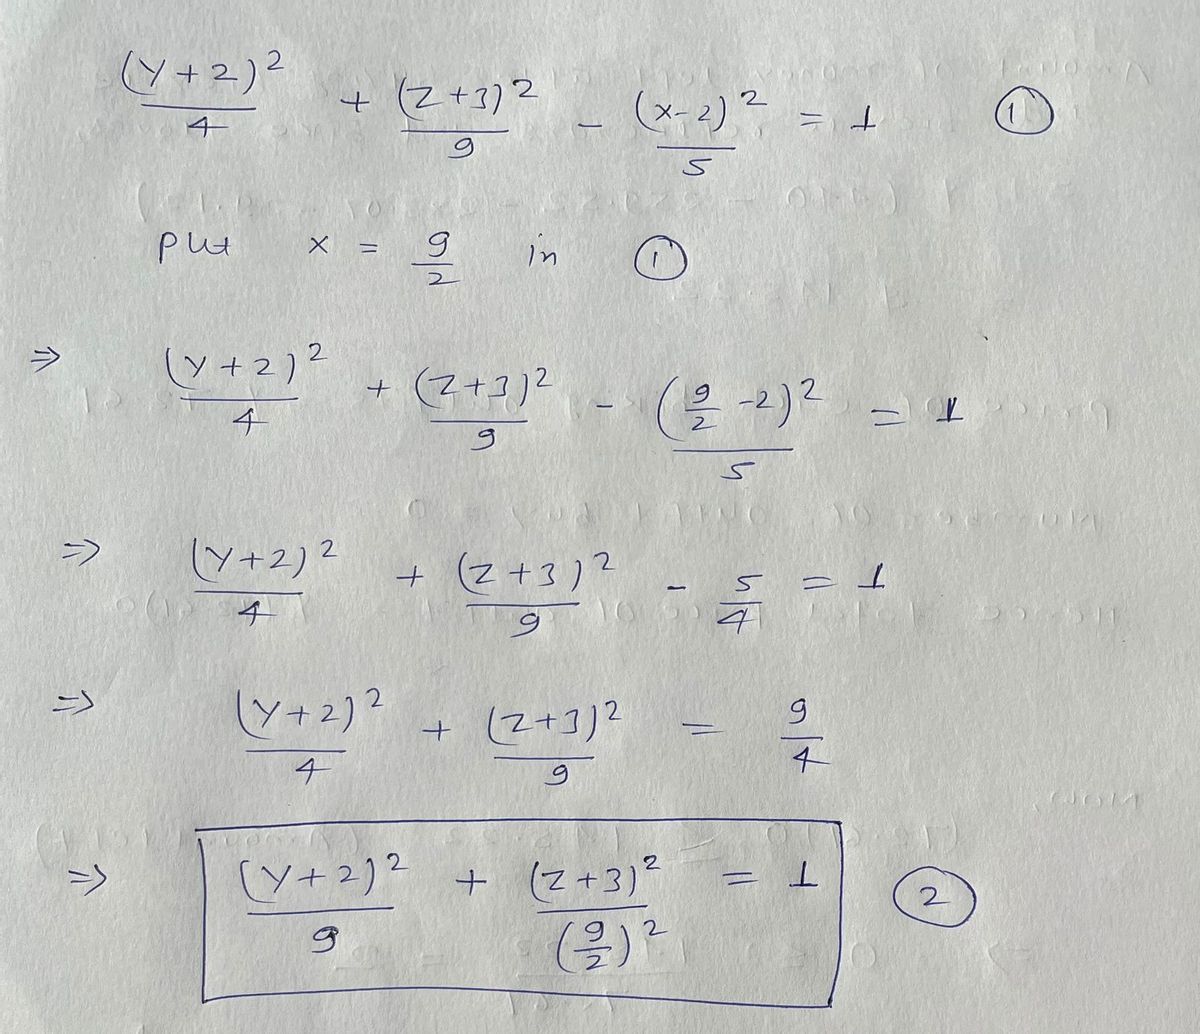 (y+2)²/4 + (z+3)²/9 - (x-2)²/5 = 1 ①
put x = 9/2 in ①
⇒ (y+2)²/4 + (z+3)²/9 - (9/2 -2)²/5 = 1
⇒ (y+2)²/4 + (z+3)²/9 - 5/4 = 1
⇒ (y+2)²/4 + (z+3)²/9 = 9/4
⇒ (y+2)²/9 + (z+3)²/(9/2)² = 1 ②